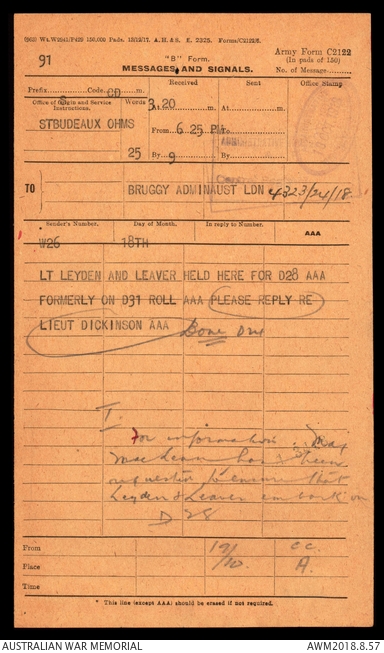 91
"B" Form.
MESSAGES AND SIGNALS.
Army Form C2122
(In pads of 150)
No. of Message
Prefix Code CD m.
Received
Sent
Office Stamp
Office of Origin and Service Instructions.
Words
At 3.20 m.
At m.
STBUDEAUX OHMS
From 6 25 PM
To
25
By 9
By
TO
BRUGGY ADMINAUST LDN 4323/24/18
Sender's Number.
Day of Month.
In reply to Number.
AAA
W26
18TH
LT LEYDEN AND LEAVER HELD HERE FOR D28 AAA
FORMERLY ON D31 ROLL AAA PLEASE REPLY RE
LIEUT DICKINSON AAA Done
For information. Maj
MacLean has been
requested to ensure that
Leyden & Leaver embark on
D 28
From
19/10
Place
A.
Time
* This line (except AAA) should be erased if not required.
AUSTRALIAN WAR MEMORIAL
AWM2018.8.57